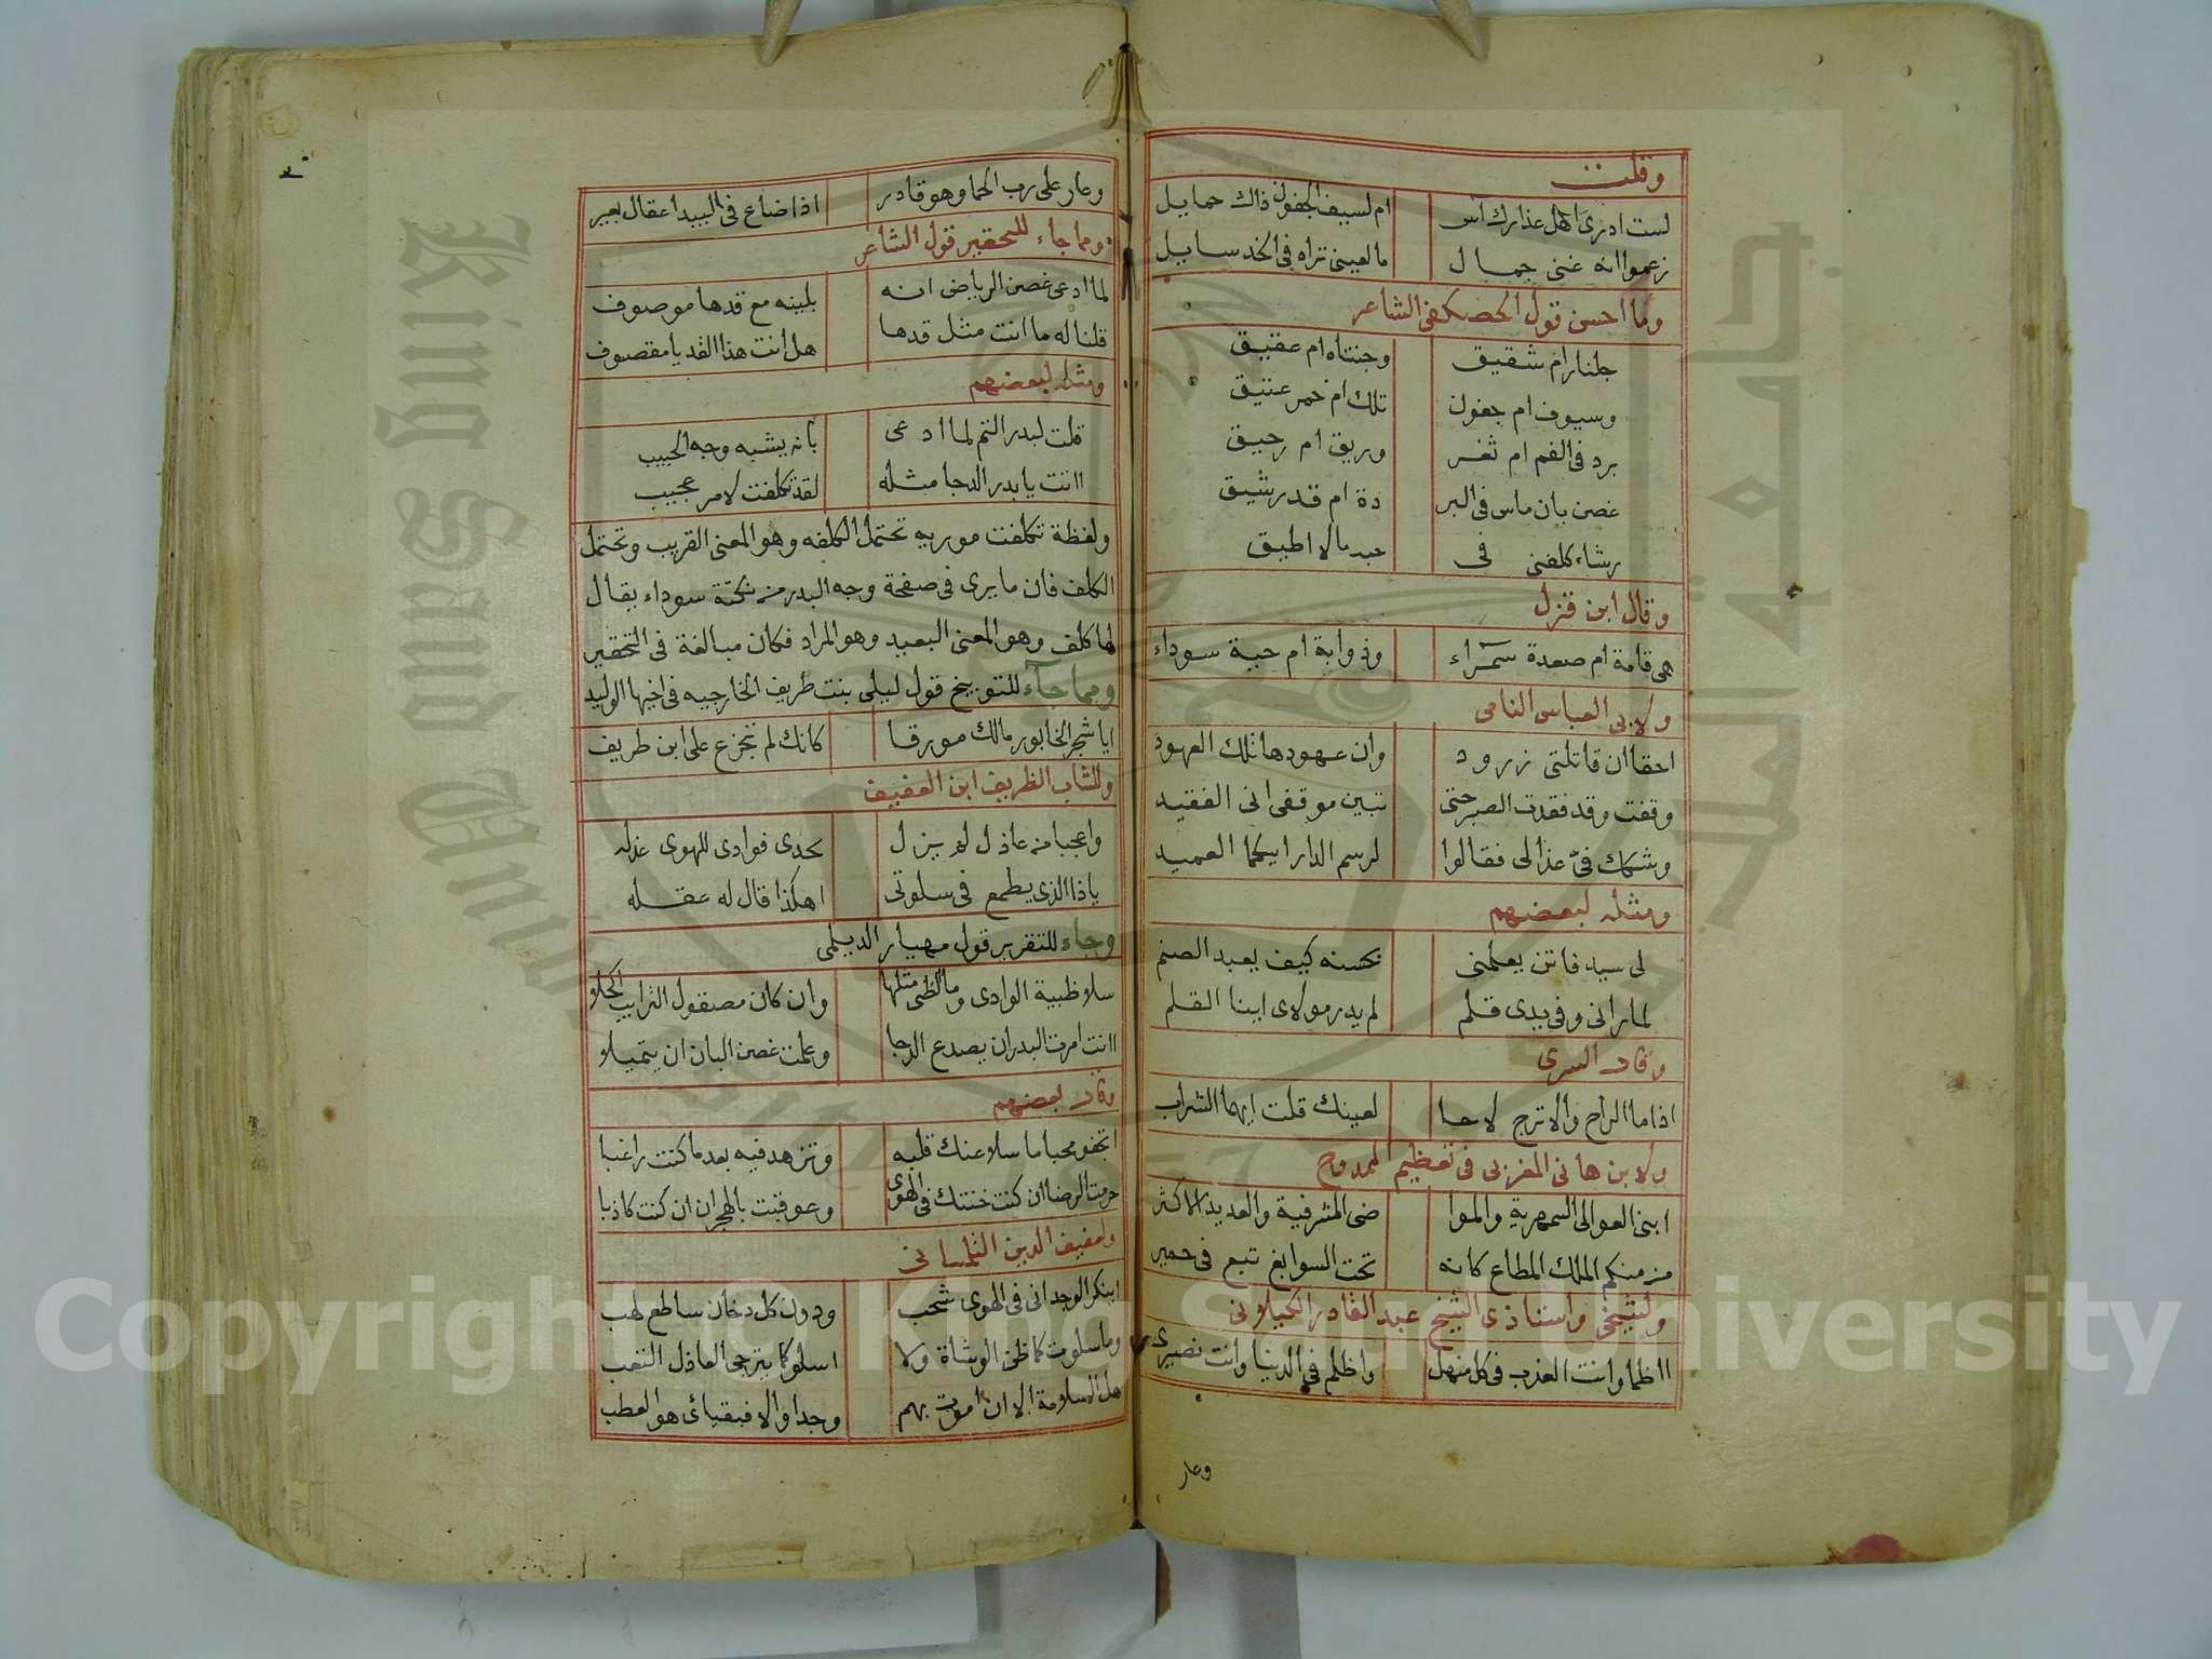 وقلت
لست ادرى اهل عذارك آس ام لسيف الجفون ذاك حمايل
زعموا انه غنى جمال ما لعينى تراه فى الخد سايل
وما احسن قول الحصكفى الشاعر
جلنار ام شقيق وجنتاه ام عقيق
وسيوف ام جفون تلك ام خمر عتيق
برد فى الفم ام ثغر وريق ام رحيق
غصن بان ماس فى البر دة ام قد رشيق
رشاء كلفنى فى حبه ما لا اطيق
وقال ابن قزل
هى قامة ام صعدة سمراء وذوابة ام حية سوداء
ولابى العباس النامى
احقا ان قاتلتى زرود وان عهودها تلك العهود
وقفت وقد فقدت الصبر حتى تبين موقفى انى الفقيد
وشكك فىّ عذالى فقالوا لرسم الدار ايكما العميد
ومثله لبعضهم
لى سيد فاتن يعلمنى بحسنه كيف يعبد الصنم
لما رانى وفى يدى قلم لم يدر مولاى اينا القلم
وقال السرى
اذا ما الراح والاترج لاحا لعينك قلت ايهما الشراب
ولابن هانى المغربى فى تعظيم الممدوح
ابنى العوالى السمهرية والموا ضى المشرفية والعديد الاكثر
من منكم الملك المطاع كانه تحت السوابغ تبع فى حمير
ولشيخى واستاذى الشيخ عبد القادر الكيلانى
ااظما وانت العذب فى كل منهل واظلم فى الدنيا وانت نصيرى
وعار
وعار على رب الحما وهو قادر اذا ضاع فى البيدا عقال بعير
ومما جاء للتحقير قول الشاعر
لما ادعى غصن الرياض انه بلينه مع قدها موصوف
قلنا له ما انت مثل قدها هل انت هذا القد يا مقصوف
ومثله لبعضهم
قلت لبدر التم لما ادعى بانه يشبه وجه الحبيب
اانت يا بدر الدجا مثله لقد تكلفت لامر عجيب
ولفظة تكلفت موريه تحتمل الكلفه وهو المعنى القريب وتحتمل
الكلف فان ما يرى فى صفحة وجه البدر من نكتة سوداء يقال
لها كلف وهو المعنى البعيد وهو المراد فكان مبالغة فى التحقير
ومما جآء للتوبيخ قول ليلى بنت طريف الخارجيه فى اخيها الوليد
ايا شجر الخابور مالك مورقا كانك لم تجزع على ابن طريف
وللشاب الظريف ابن العفيف
واعجبا من عاذل لم يزل يحدى فوادى للهوى عذله
يا ذا الذى يطمع فى سلوتى اهكذا قال له عقله
وجاء للتقرير قول مهيار الديلمى
سلا ظبية الوادى وما الظبى مثلها وان كان مصقول الترايب اكحلا
اانت امرت البدر ان يصدع الدجا وعلمت غصن البان ان يتميلا
وقال بعضهم
اتجفو محبا ما سلا عنك قلبه وتزهد فيه بعد ما كنت راغبا
حرمت الرضا ان كنت خنتك فى الهوى وعوقبت بالهجران ان كنت كاذبا
ولعفيف الدين التلمسانى
اينكر الوجد انى فى الهوى شحب ودون كل دخان ساطع لهب
وما سلوت كما ظن الوشاة ولا اسلو كما يترجى العاذل التعب
هل السلامة الا ان اموت بهم وجدا والا فبقيائى هو العطب
Copyright © King Saud University
King Saud University